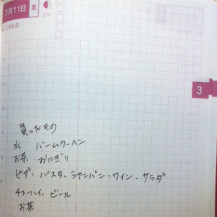 3月11日 金
3
買ったもの
水 バームクーヘン
お茶 おにぎり
ピザ、パスタ、シャンパン、ワイン、サラダ
チューハイ、ビール
お茶